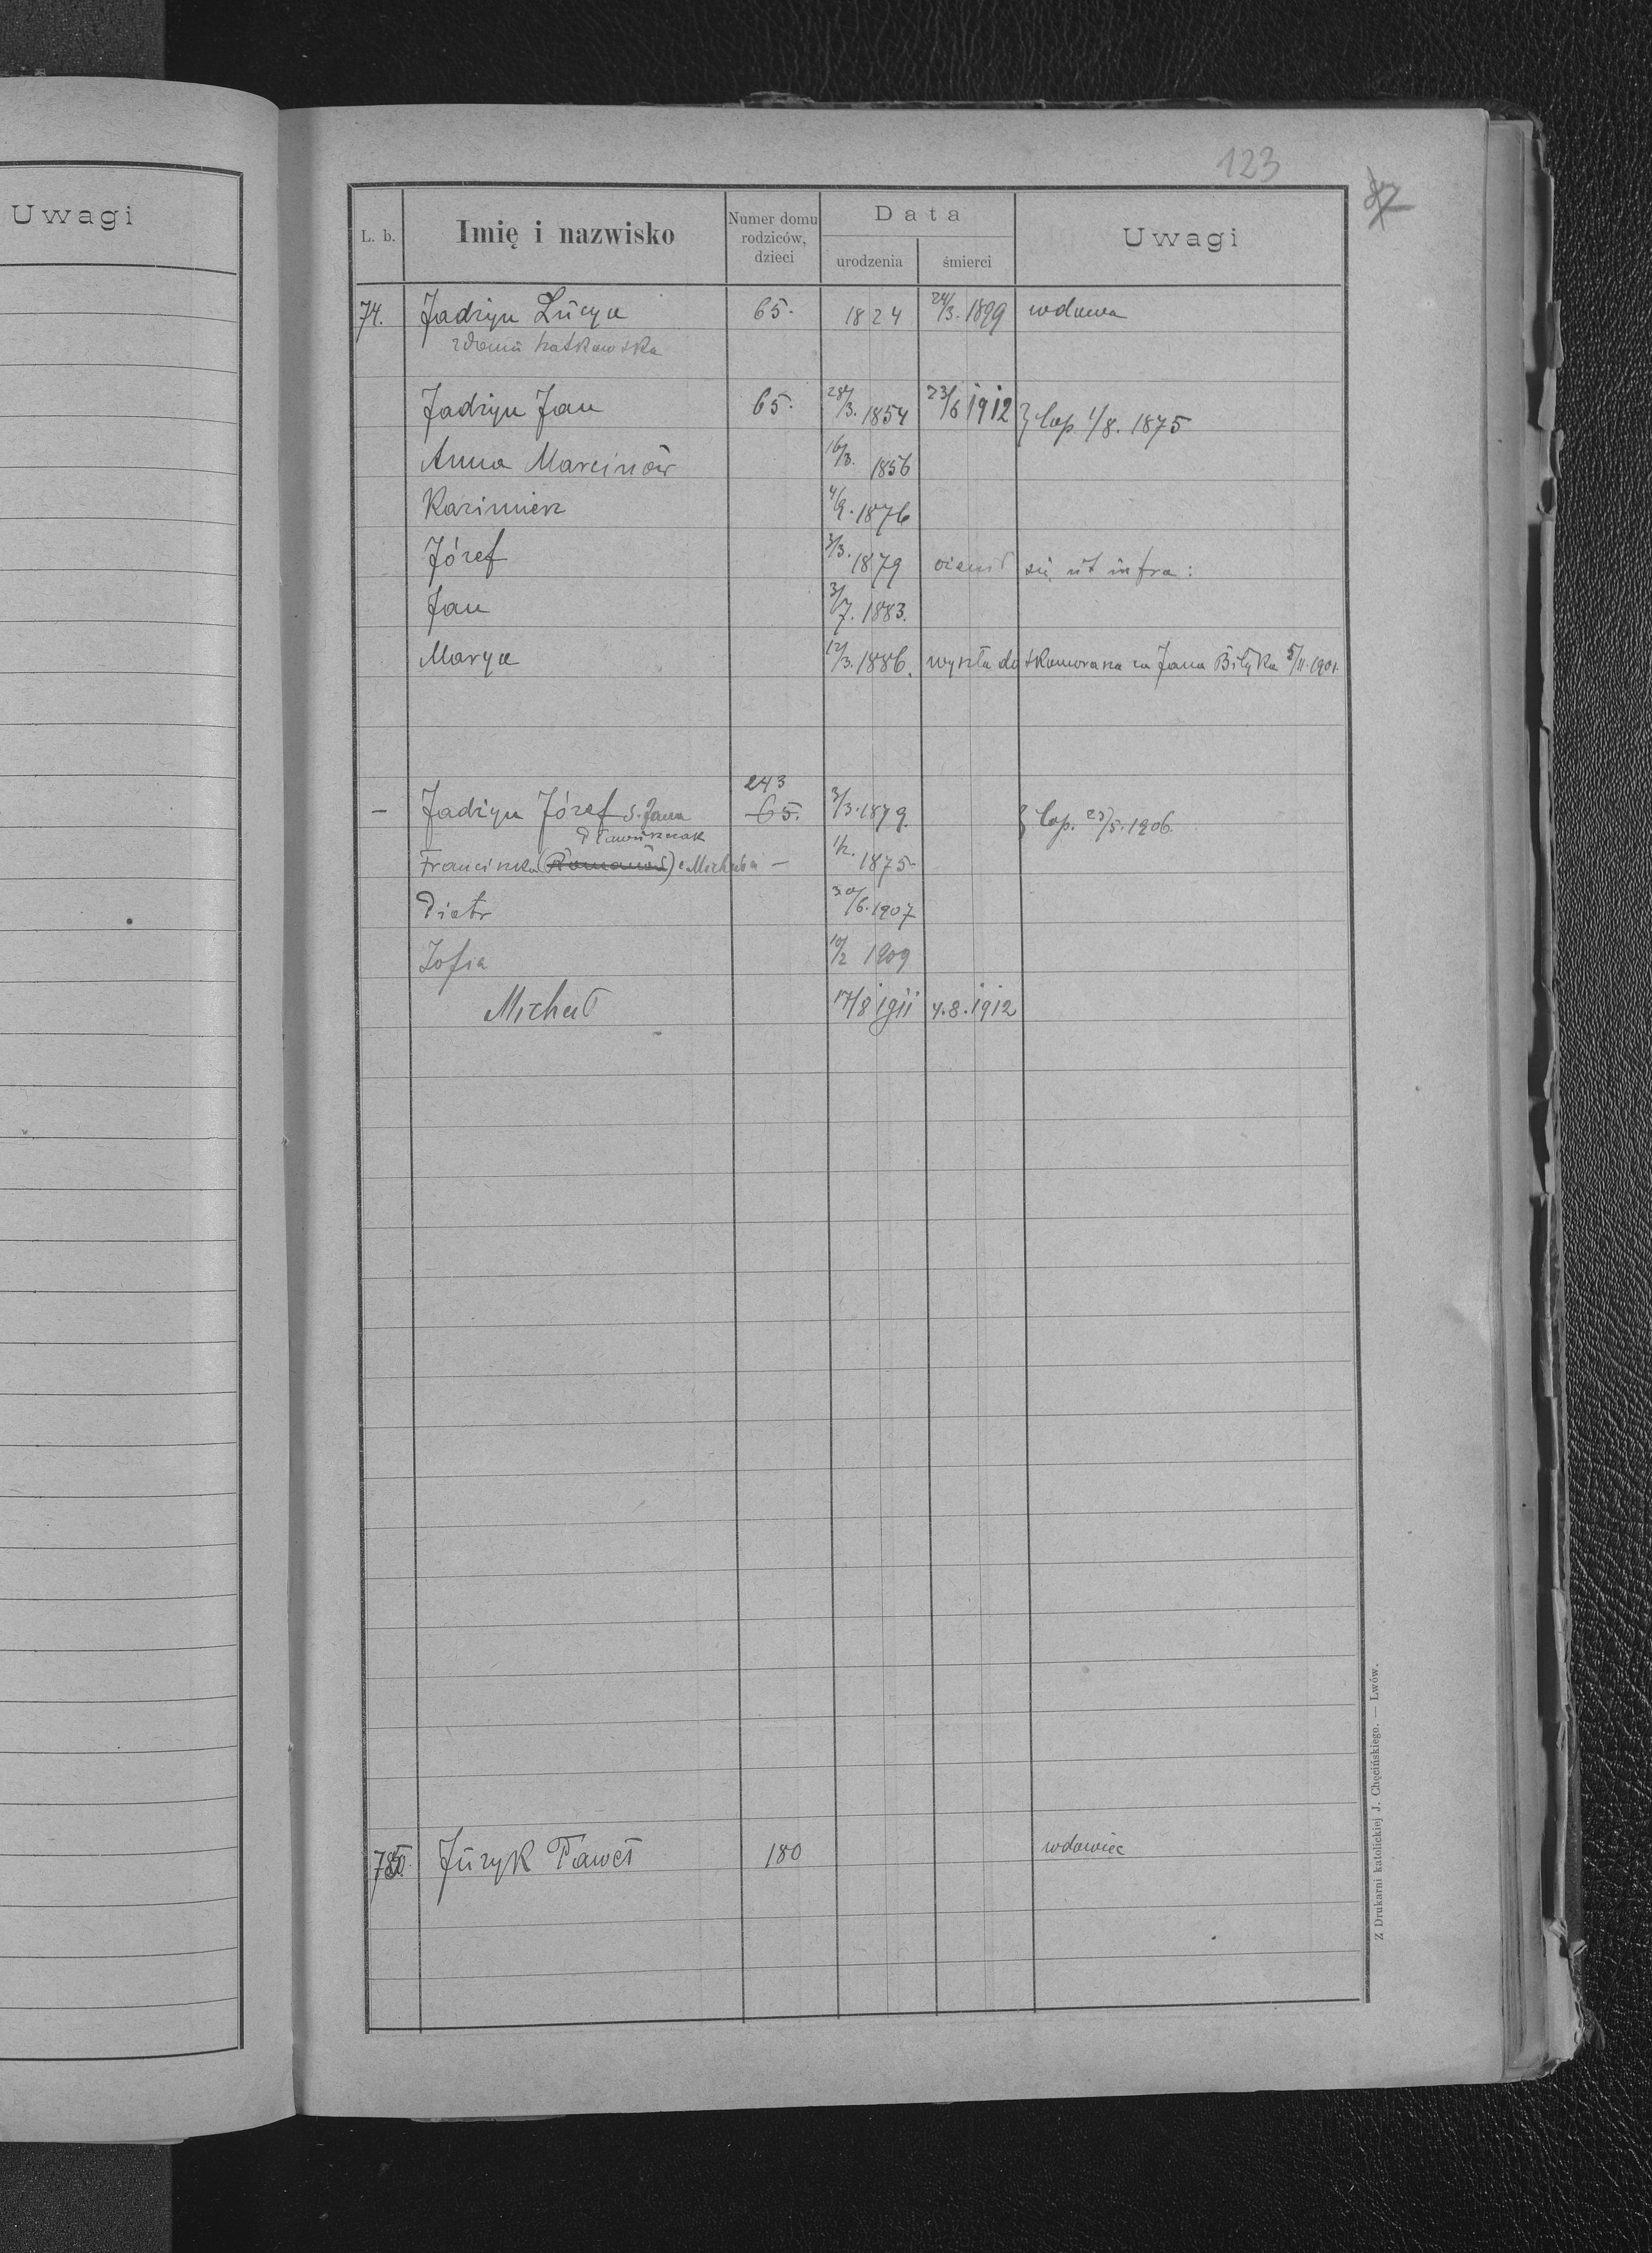 Uwagi
123
L. b.
Imię i nazwisko
Numer domu rodziców, dzieci
Data
urodzenia
śmierci
Uwagi
74. Jadżyn Łucya 65. 1824 24/3. 1899 wdowa
z domu
Jadżyn Jan 65. 28/3. 1854 23/6 1912 } cop. 1/8. 1875
Anna Marcinów 16/3. 1856
Kazimierz 4/9. 1876
Józef 3/3. 1879 ożenił się ut infra:
Jan 3/7. 1883.
Marya 12/3. 1886. wyszła do Skomorosza za Jana Biłyka 5/11. 1901.
243
— Jadżyn Józef s. Jana 65. 3/3. 1879. } cop. 23/5. 1906.
Franciszka (Romanów) c. Michała — 1/2. 1875
Piotr 30/6. 1907
Zofia 10/2 1909
Michał 17/8 1911 4.8.1912
Juzyk Paweł 180 wdowiec
Z Drukarni katolickiej J. Chęcińskiego. — Lwów.